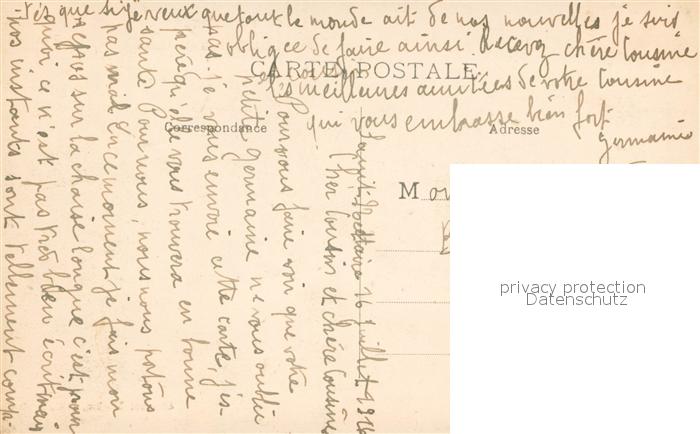 Saint-Nectaire 16 juillet 1916
Cher Cousin et chère Cousine
Pour vous faire voir que votre
petite Germaine ne vous oublie
pas, je vous envoie cette carte, j'es-
père qu'elle vous trouvera en bonne
santé. Pour nous, nous nous portons
pas mal. En ce moment je fais mon
repos sur la chaise longue c'est pour-
quoi ce n'est pas très bien écrit mais
nos instants sont tellement comp-
tés que si je veux que tout le monde ait de nos nouvelles je suis
obligée de faire ainsi. Recevez chère Cousine
les meilleures amitiés de votre Cousine
qui vous embrasse bien fort.
Germaine
CARTE POSTALE
Correspondance
Adresse
M
privacy protection
Datenschutz